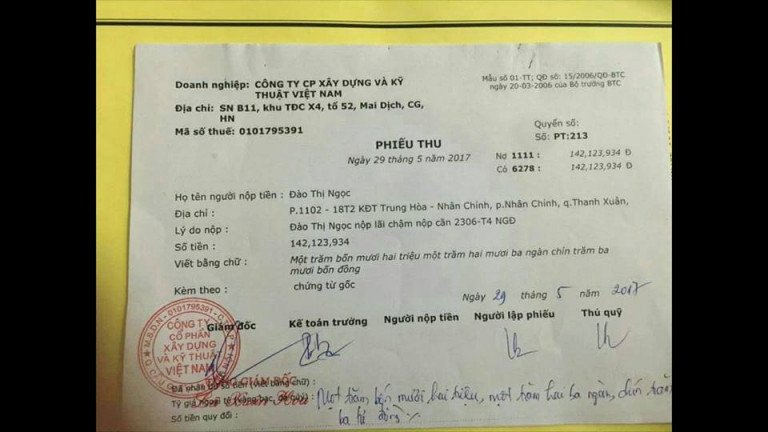 Doanh nghiệp: CÔNG TY CP XÂY DỰNG VÀ KỸ
THUẬT VIỆT NAM
Địa chỉ: SN B11, khu TĐC X4, tổ 52, Mai Dịch, CG,
HN
Mã số thuế: 0101795391
Mẫu số 01-TT; QĐ số: 15/2006/QĐ-BTC
ngày 20-03-2006 của Bộ trưởng BTC
Quyển số:
Số: PT:213
PHIẾU THU
Ngày 29 tháng 5 năm 2017
Nợ 1111 : 142,123,934 Đ
Có 6278 : 142,123,934 Đ
Họ tên người nộp tiền : Đào Thị Ngọc
Địa chỉ : P.1102 - 18T2 KĐT Trung Hòa - Nhân Chính, p.Nhân Chính, q.Thanh Xuân,
Lý do nộp : Đào Thị Ngọc nộp lãi chậm nộp căn 2306-T4 NGĐ
Số tiền : 142,123,934
Viết bằng chữ : Một trăm bốn mươi hai triệu một trăm hai mươi ba ngàn chín trăm ba
mươi bốn đồng
Kèm theo : chứng từ gốc
Ngày 29 tháng 5 năm 2017
Giám đốc Kế toán trưởng Người nộp tiền Người lập phiếu Thủ quỹ
M.S.D.N: 0101795391
CÔNG TY
CỔ PHẦN
XÂY DỰNG
VÀ KỸ THUẬT
VIỆT NAM
GIÁM ĐỐC
Đã nhận đủ số tiền (viết bằng chữ) : Một trăm bốn mươi hai triệu, một trăm hai ba ngàn, chín trăm
Tỷ giá ngoại tệ : ba tư đồng
Số tiền quy đổi :